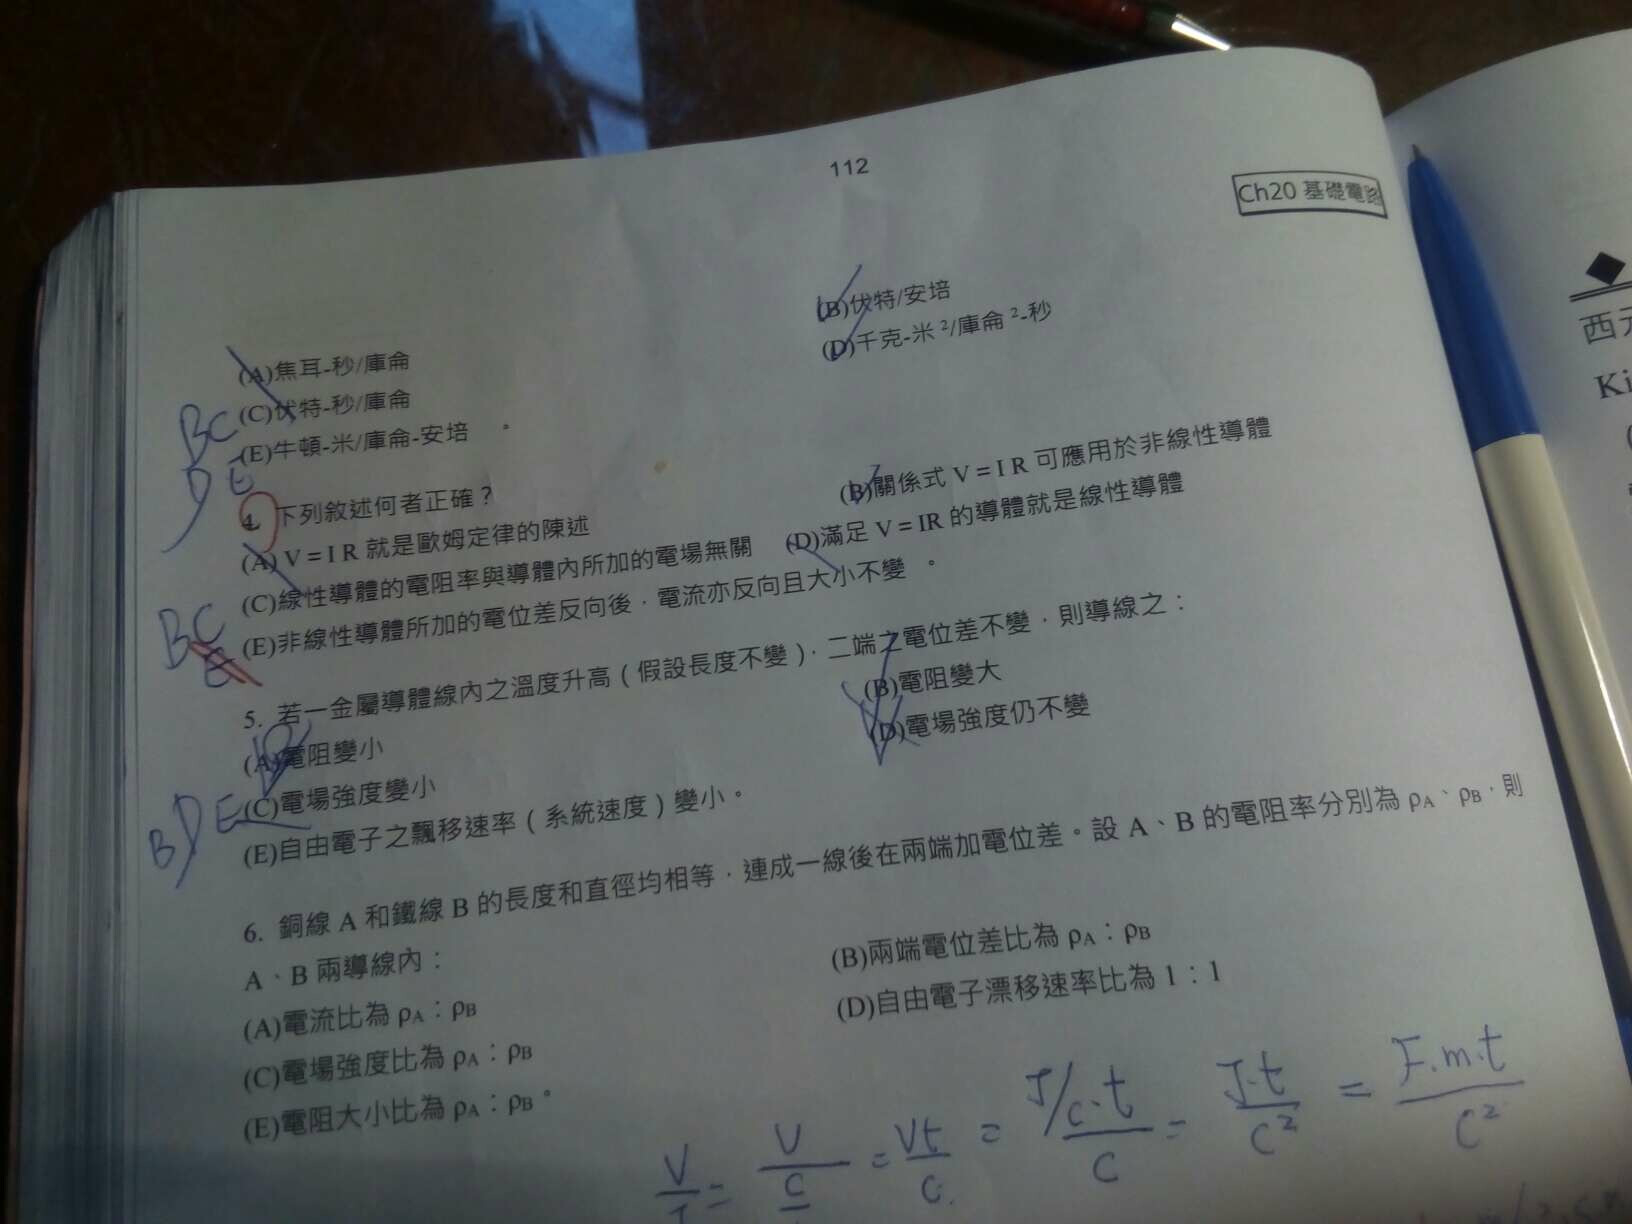 112
Ch20 基礎電路
(A)焦耳-秒/庫侖
(B)伏特/安培
(C)伏特-秒/庫侖
(D)千克-米²/庫侖²-秒
(E)牛頓-米/庫侖-安培 。
BC
DE
4. 下列敘述何者正確？
(A) V = I R 就是歐姆定律的陳述
(B)關係式 V = I R 可應用於非線性導體
(C)線性導體的電阻率與導體內所加的電場無關
(D)滿足 V = IR 的導體就是線性導體
(E)非線性導體所加的電位差反向後，電流亦反向且大小不變 。
BC
E
5. 若一金屬導體線內之溫度升高（假設長度不變），二端之電位差不變，則導線之：
(A)電阻變小
(B)電阻變大
(C)電場強度變小
(D)電場強度仍不變
(E)自由電子之飄移速率（系統速度）變小。
BDE
6. 銅線 A 和鐵線 B 的長度和直徑均相等，連成一線後在兩端加電位差。設 A、B 的電阻率分別為 ρA、ρB，則
A、B 兩導線內：
(A)電流比為 ρA：ρB
(B)兩端電位差比為 ρA：ρB
(C)電場強度比為 ρA：ρB
(D)自由電子漂移速率比為 1：1
(E)電阻大小比為 ρA：ρB。
V/I = V/(C/ = Vt/C = J/C·t/C = J·t/C² = F·m·t/C²
西元
Ki